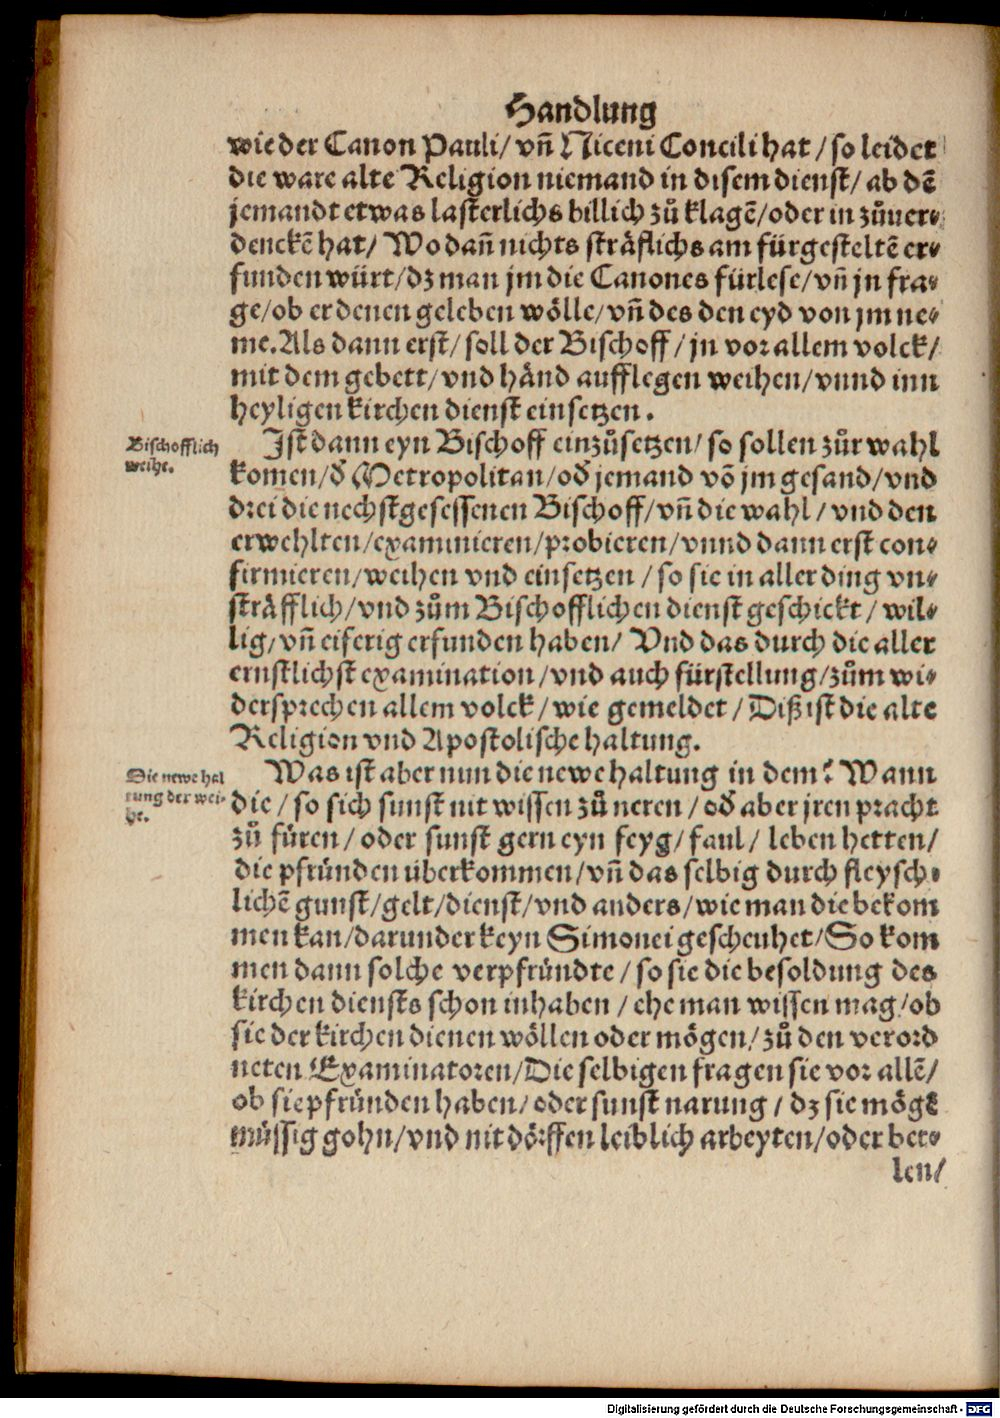 Handlung
wie der Canon Pauli/ vñ Niceni Concili hat /so leidet
die ware alte Religion niemand in disem dienst/ ab dẽ
jemandt etwas lasterlichs billich zů klagẽ/oder in zůuer⸗
denckẽ hat/ Wo dañ nichts sträflichs am fürgesteltẽ er⸗
funden würt/dz man jm die Canones fürlese/vñ jn fra⸗
ge/ob er denen geleben wölle/vñ des den eyd von jm ne⸗
me. Als dann erst/ soll der Bischoff /jn vor allem volck/
mit dem gebett/vnd händ aufflegen weihen/vnnd inn
heyligen kirchen dienst einsetzen.
Bischofflich
weihe.
Ist dann eyn Bischoff einzůsetzen/ so sollen zůr wahl
komen/d̕ Metropolitan/od̕ jemand võ jm gesand/vnd
drei die nechstgesessenen Bischoff/vñ die wahl / vnd den
erwehlten/examinieren/probieren/vnnd dann erst con⸗
firmieren/weihen vnd einsetzen /so sie in aller ding vn⸗
sträfflich/vnd zům Bischofflichen dienst geschickt / wil⸗
lig/vñ eiferig erfunden haben/ Vnd das durch die aller
ernstlichst examination/vnd auch fürstellung/zům wi⸗
dersprechen allem volck/ wie gemeldet /Diß ist die alte
Religion vnd Apostolische haltung.
Die newe hal
tung der wei⸗
he.
Was ist aber nun die newe haltung in dem? Wann
die / so sich sunst nit wissen zů neren / od̕ aber jren pracht
zů füren / oder sunst gern eyn feyg/ faul/ leben hetten/
die pfründen überkommen/vñ das selbig durch fleysch⸗
lichẽ gunst/gelt/dienst/vnd anders/wie man die bekom
men kan/darunder keyn Simonei gescheuhet/So kom
men dann solche verpfründte / so sie die besoldung des
kirchen diensts schon inhaben / ehe man wissen mag/ob
sie der kirchen dienen wöllen oder mögen/ zů den verord
neten Examinatoren/Die selbigen fragen sie vor allẽ/
ob sie pfründen haben/oder sunst narung / dz sie mögẽ
müssig gohn/vnd nit dörffen leiblich arbeyten/oder bet⸗
len/
Digitalisierung gefördert durch die Deutsche Forschungsgemeinschaft - DFG